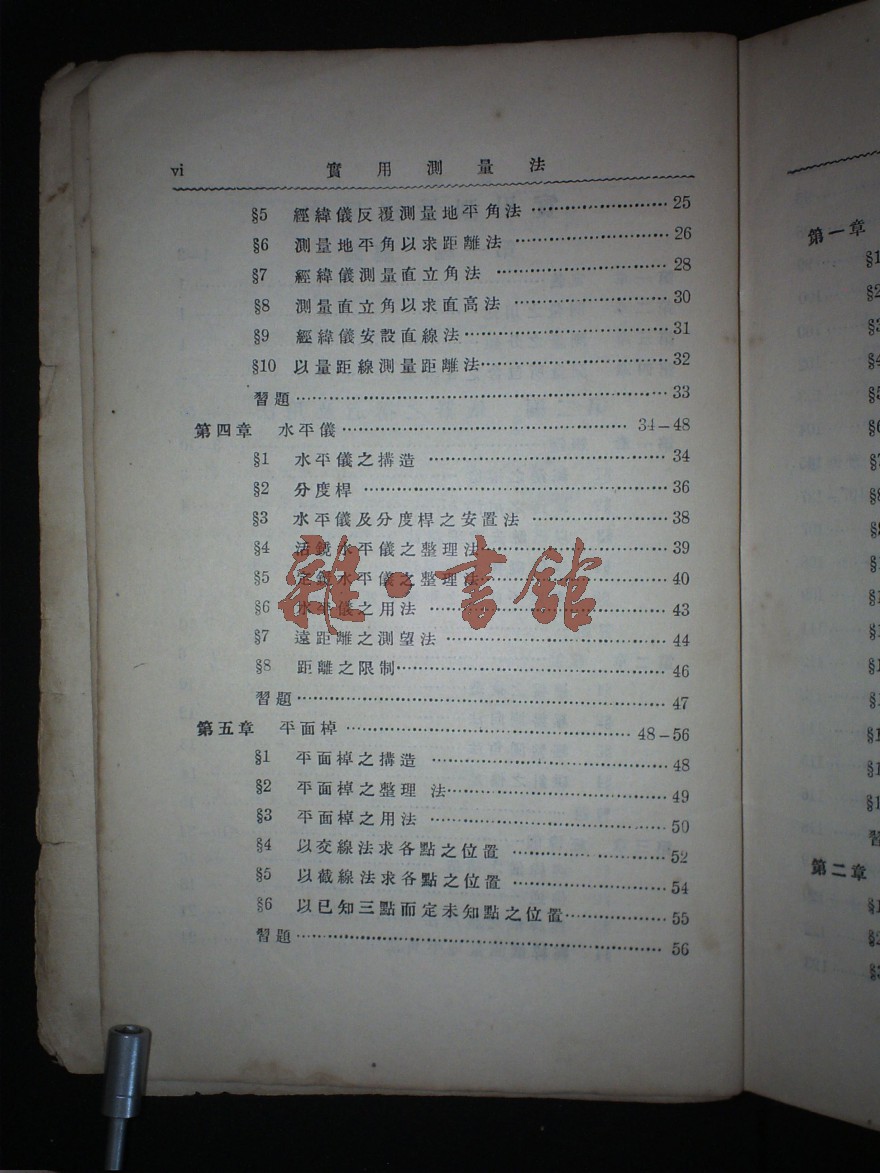 vi 實用測量法
§5 經緯儀反覆測量地平角法 25
§6 測量地平角以求距離法 26
§7 經緯儀測量直立角法 28
§8 測量直立角以求直高法 30
§9 經緯儀安設直線法 31
§10 以量距線測量距離法 32
習題 33
第四章 水平儀 34—48
§1 水平儀之搆造 34
§2 分度桿 36
§3 水平儀及分度桿之安置法 38
§4 活鏡水平儀之整理法 39
§5 定鏡水平儀之整理法 40
§6 水平儀之用法 43
§7 遠距離之測望法 44
§8 距離之限制 46
習題 47
第五章 平面棹 48—56
§1 平面棹之搆造 48
§2 平面棹之整理法 49
§3 平面棹之用法 50
§4 以交線法求各點之位置 52
§5 以截線法求各點之位置 54
§6 以已知三點而定未知點之位置 55
習題 56
雜·書館
第一章
第二章